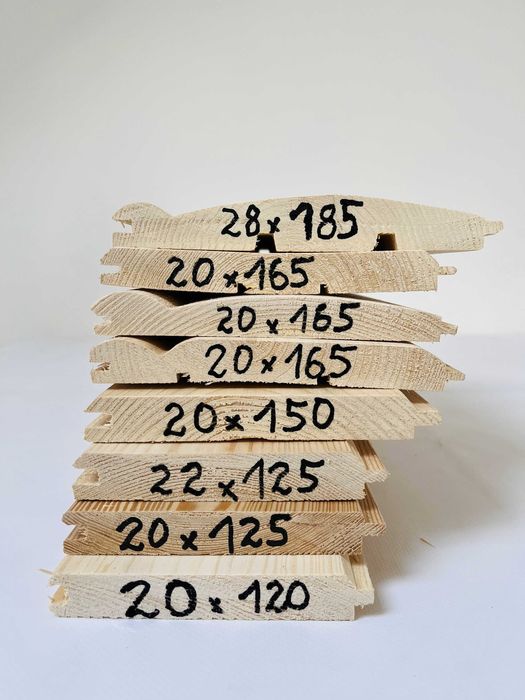 28 x 185
20 x 165
20 x 165
20 x 165
20 x 150
22 x 125
20 x 125
20 x 120